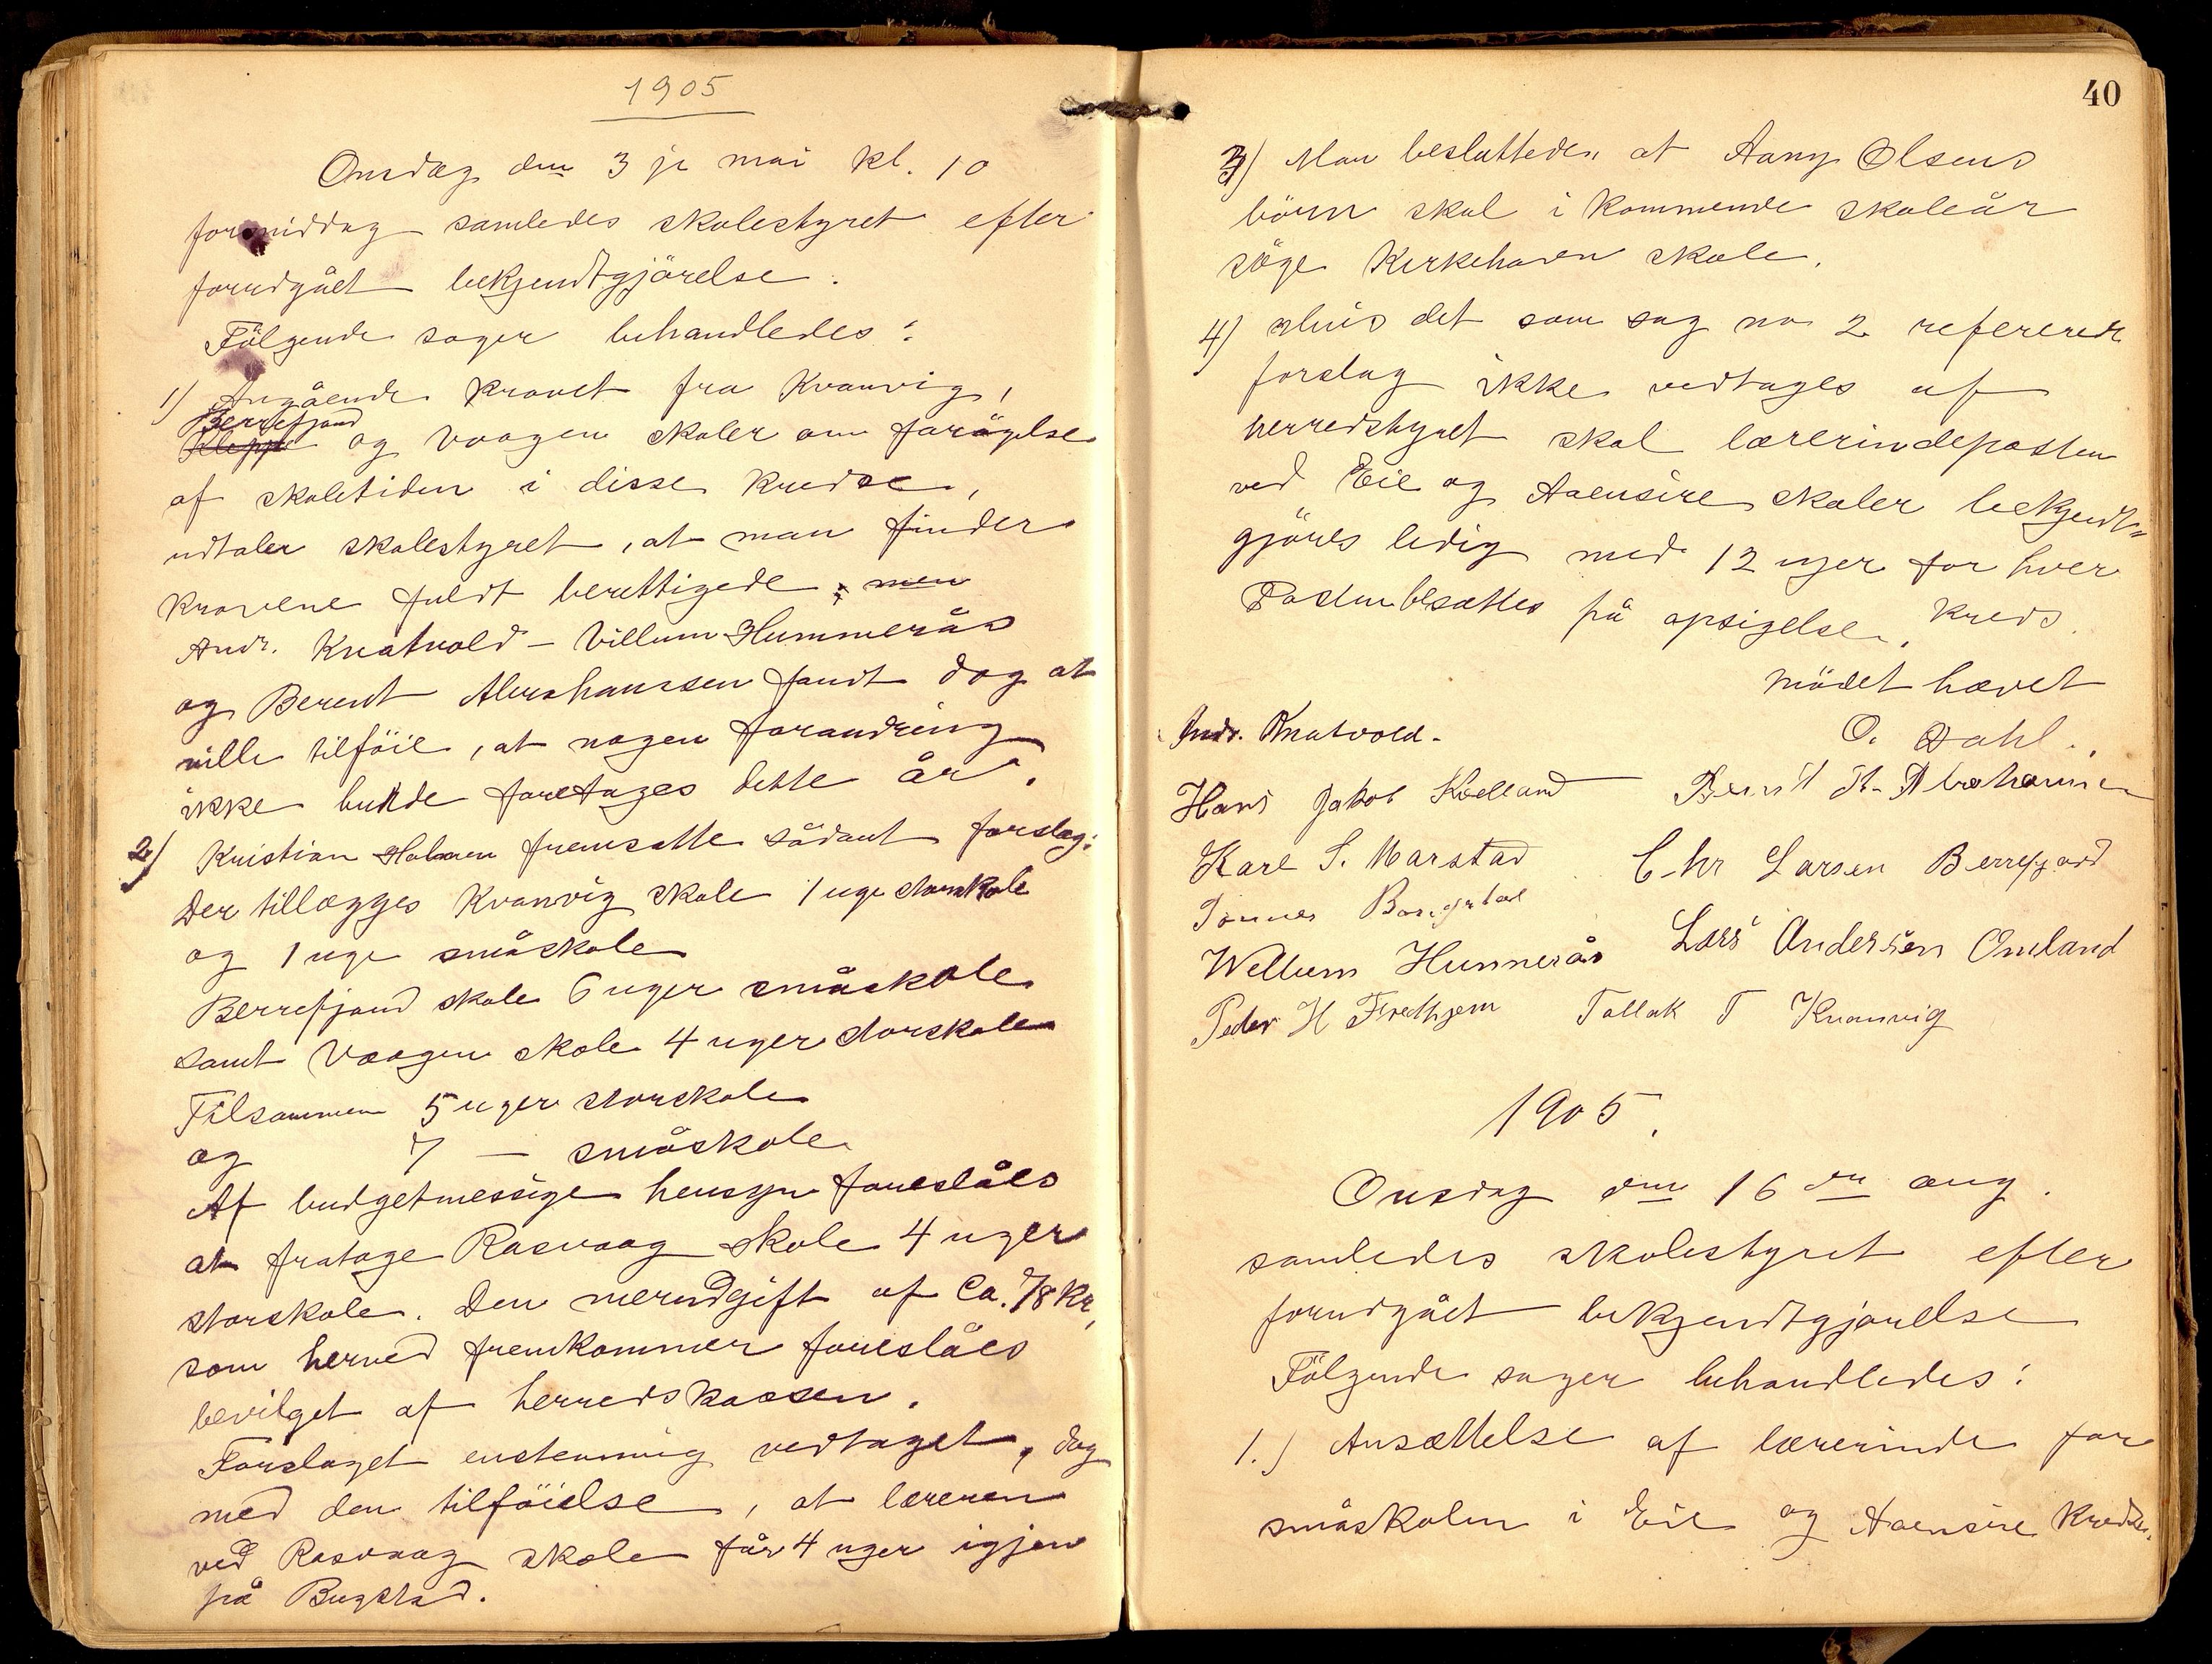 1905
Onsdag den 3je mai kl. 10
formiddag samledes skolestyret efter
forudgået bekjendtgjörelse.
Fölgende sager behandledes:
1) Angående kravet fra Kvanvig,
Berrefjord
Kleppe og Vaagen skoler om forögelse
af skoletiden i disse kredse,
udtaler skolestyret, at man finder
kravene fuldt berettigede; men
Andr. Knatvold – Villum Hummerås
og Berent Abrahamsen fandt dog at
ville tilföie, at nogen forandring
ikke burde foretages dette år.
2) Kristian fremsatte sådant forslag:
Der tillægges Kvanvig skole 1 uge storskole
og 1 uge småskole
Berrefjord skole 6 uger småskole
samt Vaagen skole 4 uger storskole
Tilsammen 5 uger storskole
og 7 – småskole
Af budgetmessige hensyn foreslåes
at fratage Rasvaag skole 4 uger
storskole. Den merudgift af Ca. 78 kr,
som herved fremkommer foreslåes
bevilget af herredskassen.
Forslaget enstemmig vedtaget, dog
med den tilföielse, at læreren
ved Rasvaag skole får 4 uger igjen
på Bugstad.
40
3) Man besluttede, at Aany Olsens
börn skal i kommende skoleår
söge Kirkehavn skole.
4) Hvis det som sag no 2 refererede
forslag ikke vedtages af
herredstyret skal lærerindeposten
ved Eie og Aaensire skoler bekjendt-
gjöres ledig med 12 uger for hver
Posten besættes på opsigelse. kreds.
Mödet hævet
Andr. Knatvold. O. Dahl.
Hans Jakob Kvelland Bernt A. Abrahamsen
Karl S. Marstad Chr Larsen Berrefjord
Tönnes
Wellum Hunnerås Lars Andersen Omland
Peder H Tollak T Kvanvig
1905.
Onsdag den 16de aug.
samledes skolestyret efter
forudgået bekjendtgjörelse
Fölgende sager behandledes:
1.) Ansættelse af lærerinde for
småskolen i Eie og Aaensire kredse.